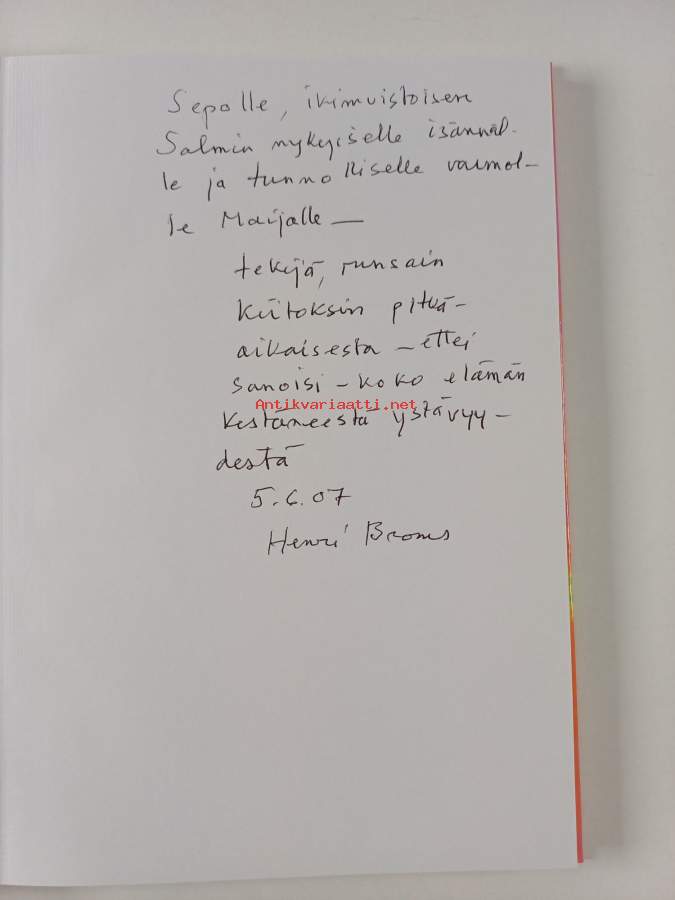 Sepolle, ikimuistoisen
Salmin nykyiselle isännäl-
le ja tunnolliselle vaimol-
le Maijalle —
tekijä, runsain
kiitoksin pitkä-
aikaisesta – ettei
sanoisi – koko elämän
Antikvariaatti.net
kestäneestä ystävyy-
destä
5.6.07
Henri Broms